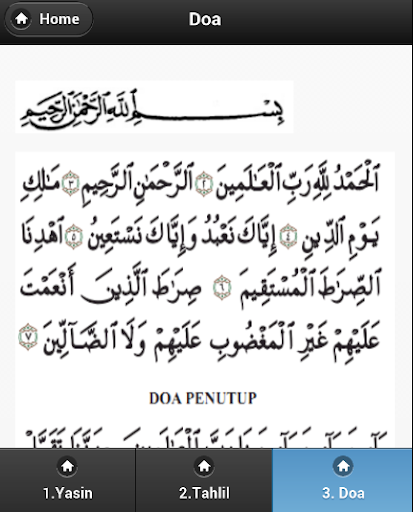 Home
Doa
بِسْمِ اللَّهِ الرَّحْمَٰنِ الرَّحِيمِ
الْحَمْدُ لِلَّهِ رَبِّ الْعَالَمِينَ ٢ الرَّحْمَٰنِ الرَّحِيمِ ٣ مَالِكِ
يَوْمِ الدِّينِ ٤ إِيَّاكَ نَعْبُدُ وَإِيَّاكَ نَسْتَعِينُ ٥ اهْدِنَا
الصِّرَاطَ الْمُسْتَقِيمَ ٦ صِرَاطَ الَّذِينَ أَنْعَمْتَ
عَلَيْهِمْ غَيْرِ الْمَغْضُوبِ عَلَيْهِمْ وَلَا الضَّالِّينَ ٧
DOA PENUTUP
1.Yasin
2.Tahlil
3. Doa